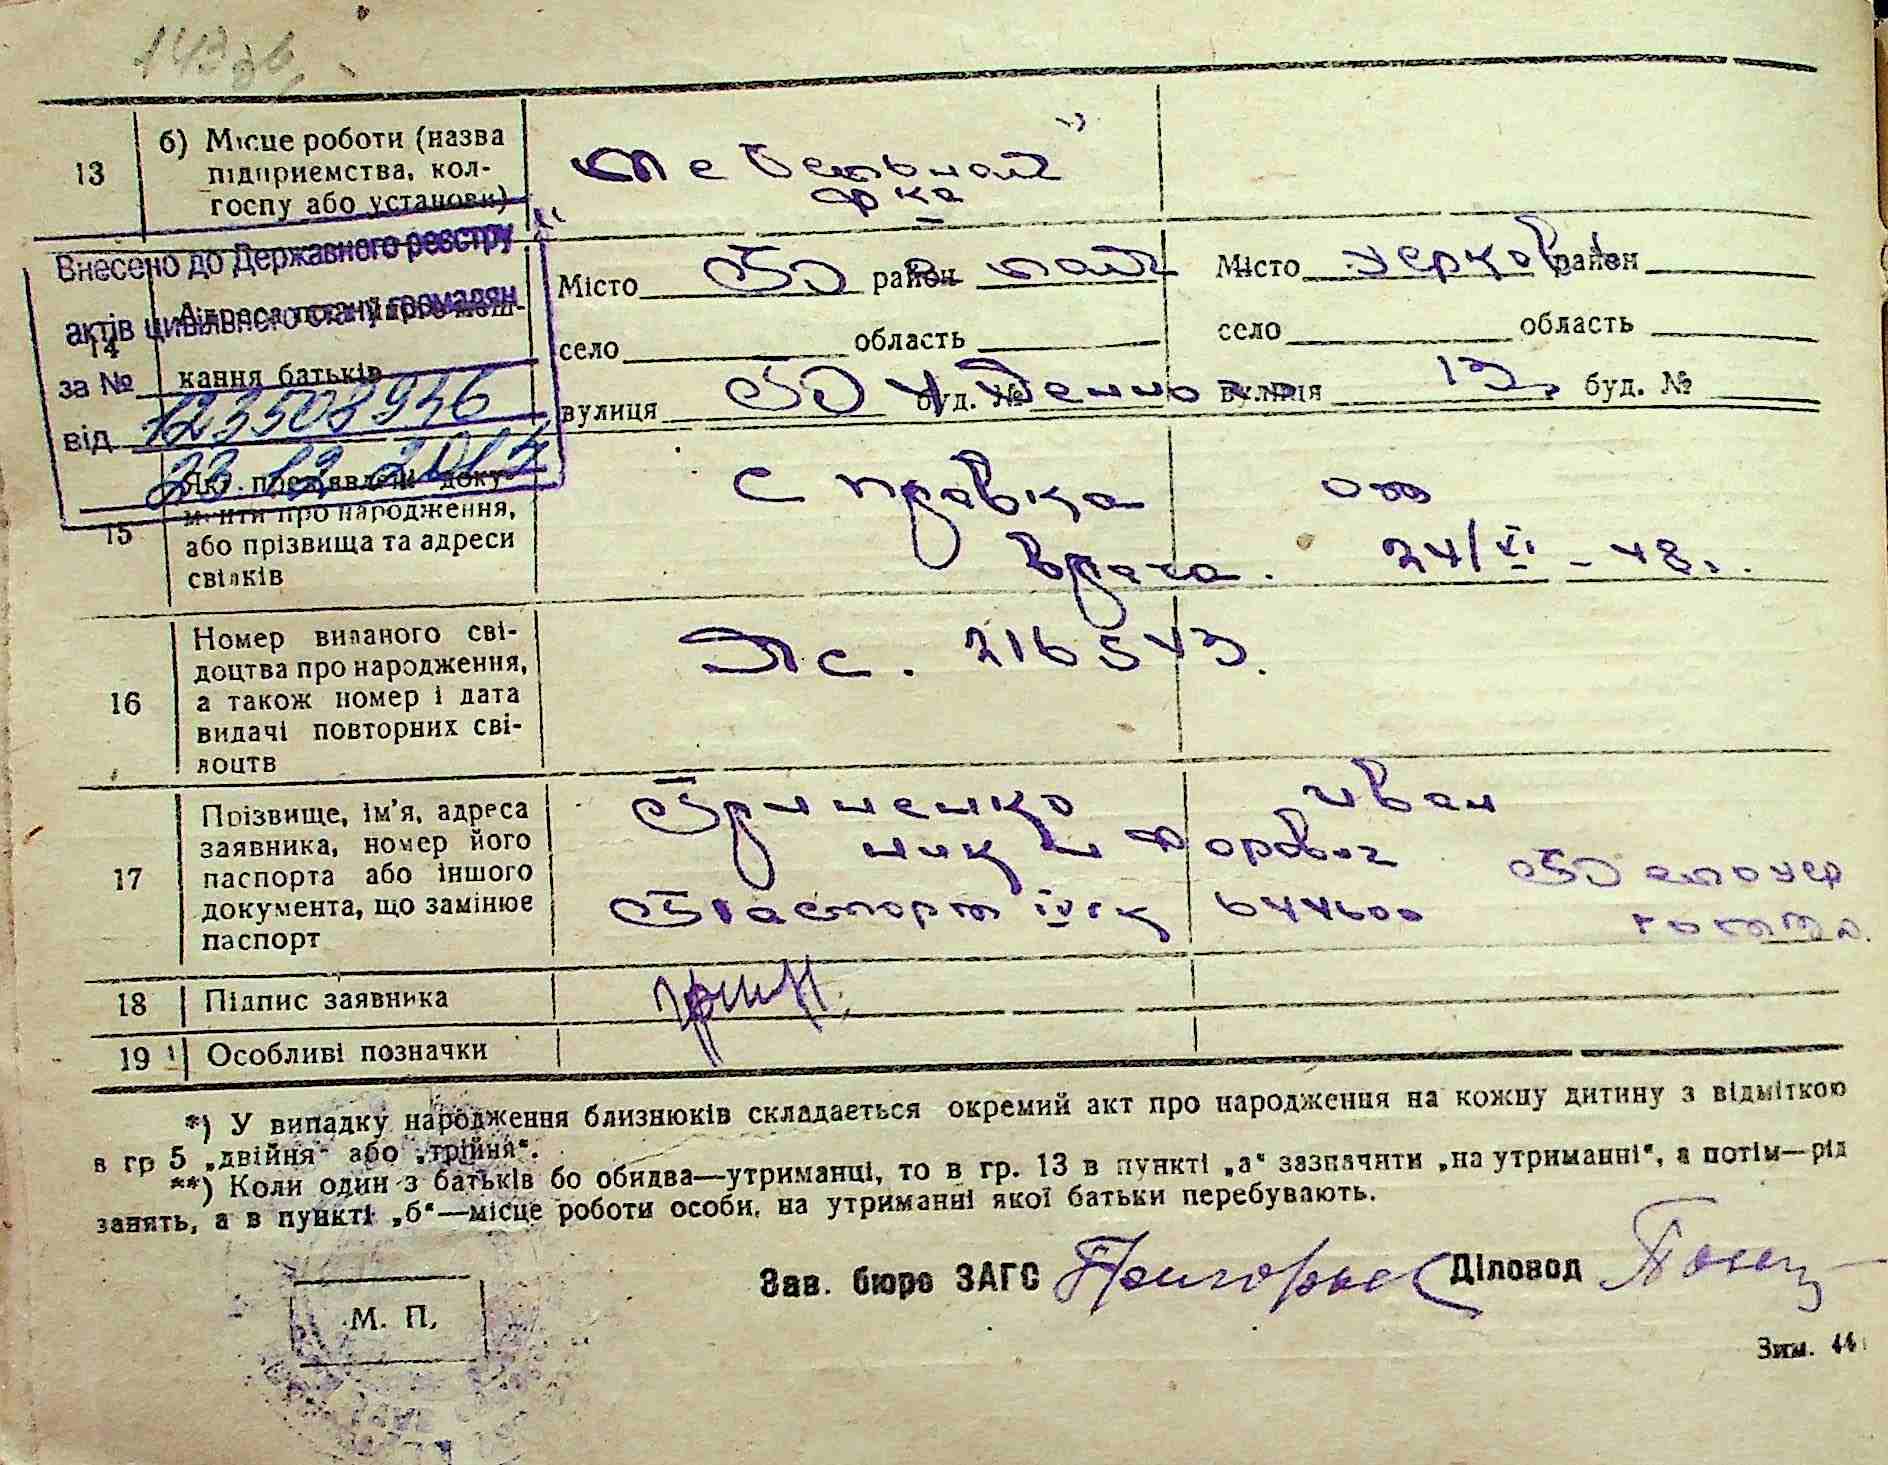 13
б) Місце роботи (назва
підприємства, кол-
госпу або установи)
Мебельная
ф-ка
Внесено до Державного реєстру
актів цивільного стану громадян
за №
123508936
від
23 12 2014
14
кання батьків
Місто район
село область
вулиця буд. №
Місто район
село область
вулиця 13 буд. №
15
Які пред'явлені доку-
менти про народження,
або прізвища та адреси
свідків
Справка от
врача. 24/VI - 48.
16
Номер виданого сві-
доцтва про народження,
а також номер і дата
видачі повторних сві-
доцтв
216543.
17
Прізвище, ім'я, адреса
заявника, номер його
паспорта або іншого
документа, що замінює
паспорт
Гриненко Иван
Никифорович
Паспорт 644600
18
Підпис заявника
19
Особливі позначки
*) У випадку народження близнюків складається окремий акт про народження на кожну дитину з відміткою
в гр 5 „двійня“ або „трійня“.
**) Коли один з батьків бо обидва—утриманці, то в гр. 13 в пункті „а“ зазначити „на утриманні“, а потім—рід
занять, а в пункті „б“—місце роботи особи, на утриманні якої батьки перебувають.
Зав. бюро ЗАГС Діловод
М. П.
Зим. 44